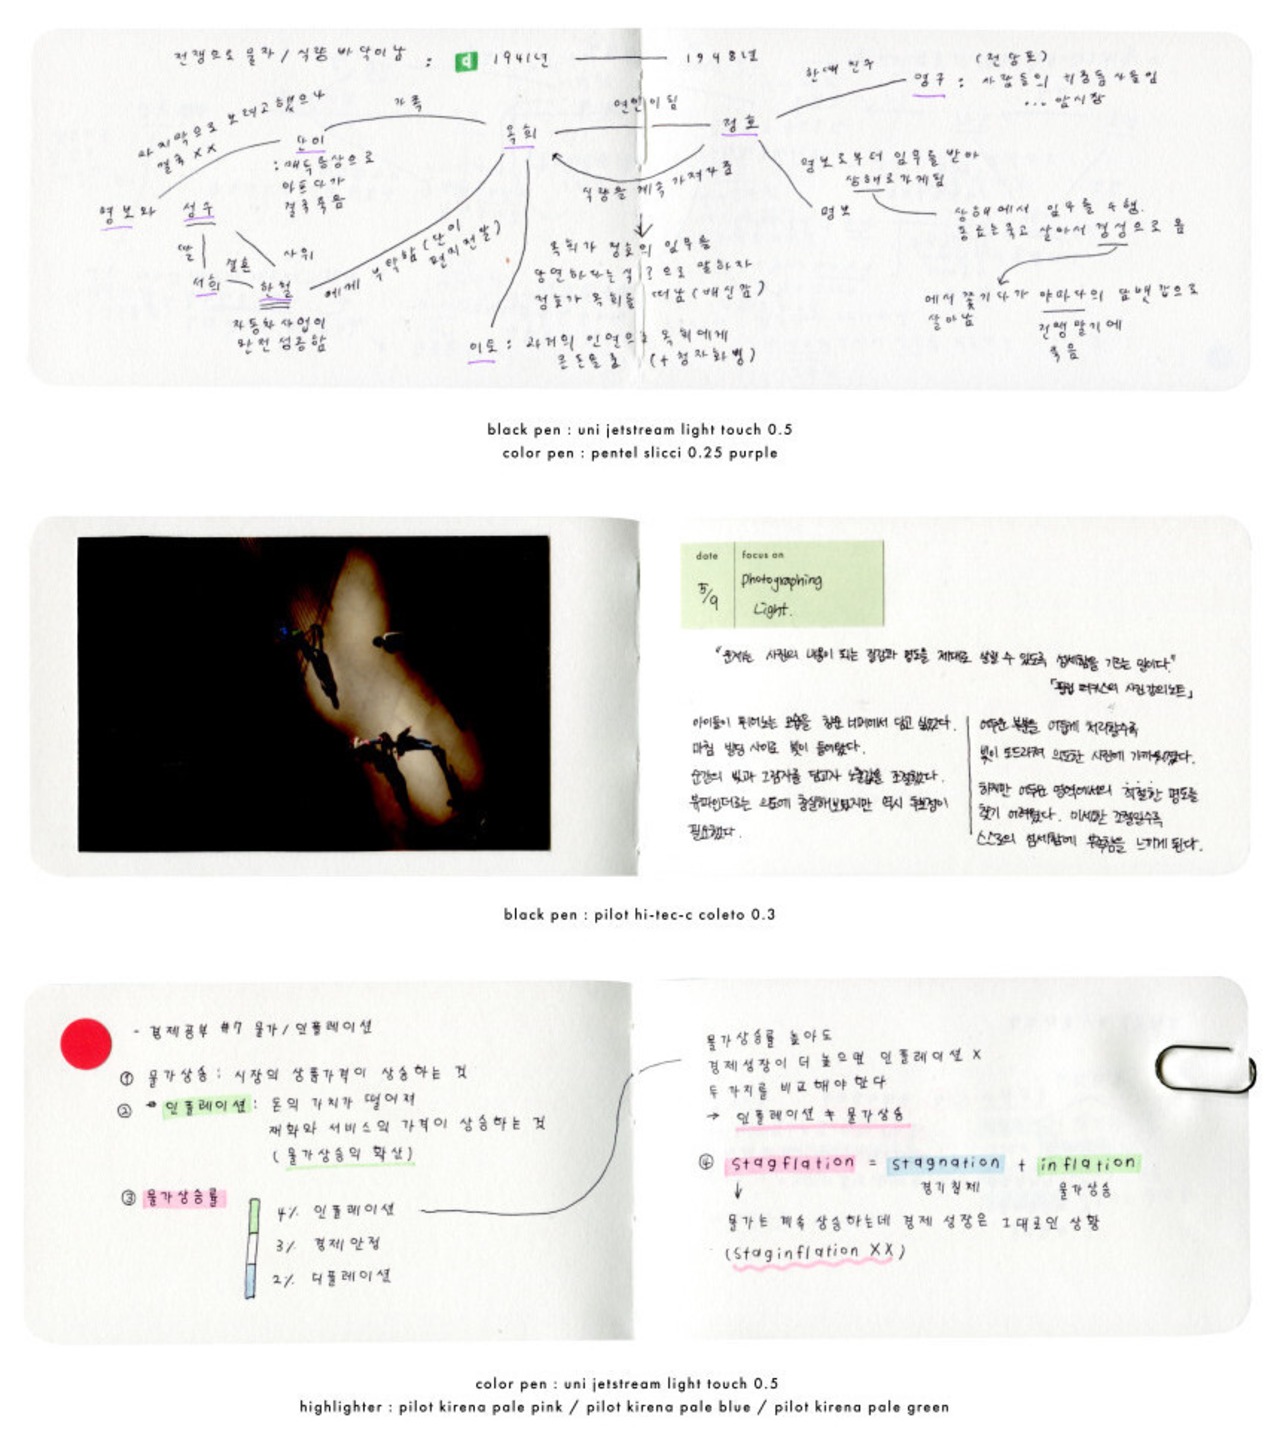 전쟁으로 물자 / 식량 바닥이 남 : d 1941년 — 1948년
마지막으로 보려고 했으나
결국 XX
가족
연인이 됨
한때 친구
(전당포)
영구 : 사람들의
... 암시장
단이
: 매독증상으로
아프다가
결국 죽음
옥희
정호
식량을 계속 가져다줌
명보로부터 임무를 받아
상해로 가게됨
명보
상해에서 임무를 수행.
동료는 죽고 살아서 경성으로 옴
명보와 성수
딸
결혼
사위
서희
한철
자동차 사업이
완전 성공함
에게 부탁함 (단이 편지전달)
옥희가 정호의 임무를
당연하다는 식?으로 말하자
정호가 옥희를 떠남 (배신감)
이토 : 과거의 인연으로 옥희에게
큰돈을 줌 (+ 청자화병)
에서 쫓기다가 야마다의 담뱃갑으로
살아남
전쟁 말기에
죽음
black pen : uni jetstream light touch 0.5
color pen : pentel slicci 0.25 purple
date
focus on
5/9
Photographing
Light.
"문제는 사진의 내용이 되는 질감과 명도를 제대로 살릴 수 있도록 섬세함을 기르는 일이다."
「필립 퍼키스의 사진강의노트」
아이들이 뛰어노는 모습을 창문 너머에서 담고 싶었다.
마침 빌딩 사이로 빛이 들어왔다.
순간의 빛과 그림자를 담고자 노출값을 조절했다.
뷰파인더로는 의도에 충실해보였지만 역시 후보정이
필요했다.
어두운 부분을 어둡게 처리할수록
빛이 또드라져 의도한 사진에 가까워졌다.
하지만 어두운 영역에서의 적절한 명도를
찾기 어려웠다. 미세한 조정일수록
스스로의 섬세함에 부족함을 느끼게 된다.
black pen : pilot hi-tec-c coleto 0.3
- 경제공부 #7 물가 / 인플레이션
① 물가상승 : 시장의 상품가격이 상승하는 것
② → 인플레이션 : 돈의 가치가 떨어져
재화와 서비스의 가격이 상승하는 것
(물가상승의 확산)
③ 물가상승률
4% 인플레이션
3% 경제안정
2% 디플레이션
물가상승률 높아도
경제성장이 더 높으면 인플레이션 X
두 가지를 비교해야 한다
→ 인플레이션 ≠ 물가상승
④ stagflation = stagnation + inflation
경기침체
물가상승
↓
물가는 계속 상승하는데 경제 성장은 그대로인 상황
(staginflation XX)
color pen : uni jetstream light touch 0.5
highlighter : pilot kirena pale pink / pilot kirena pale blue / pilot kirena pale green